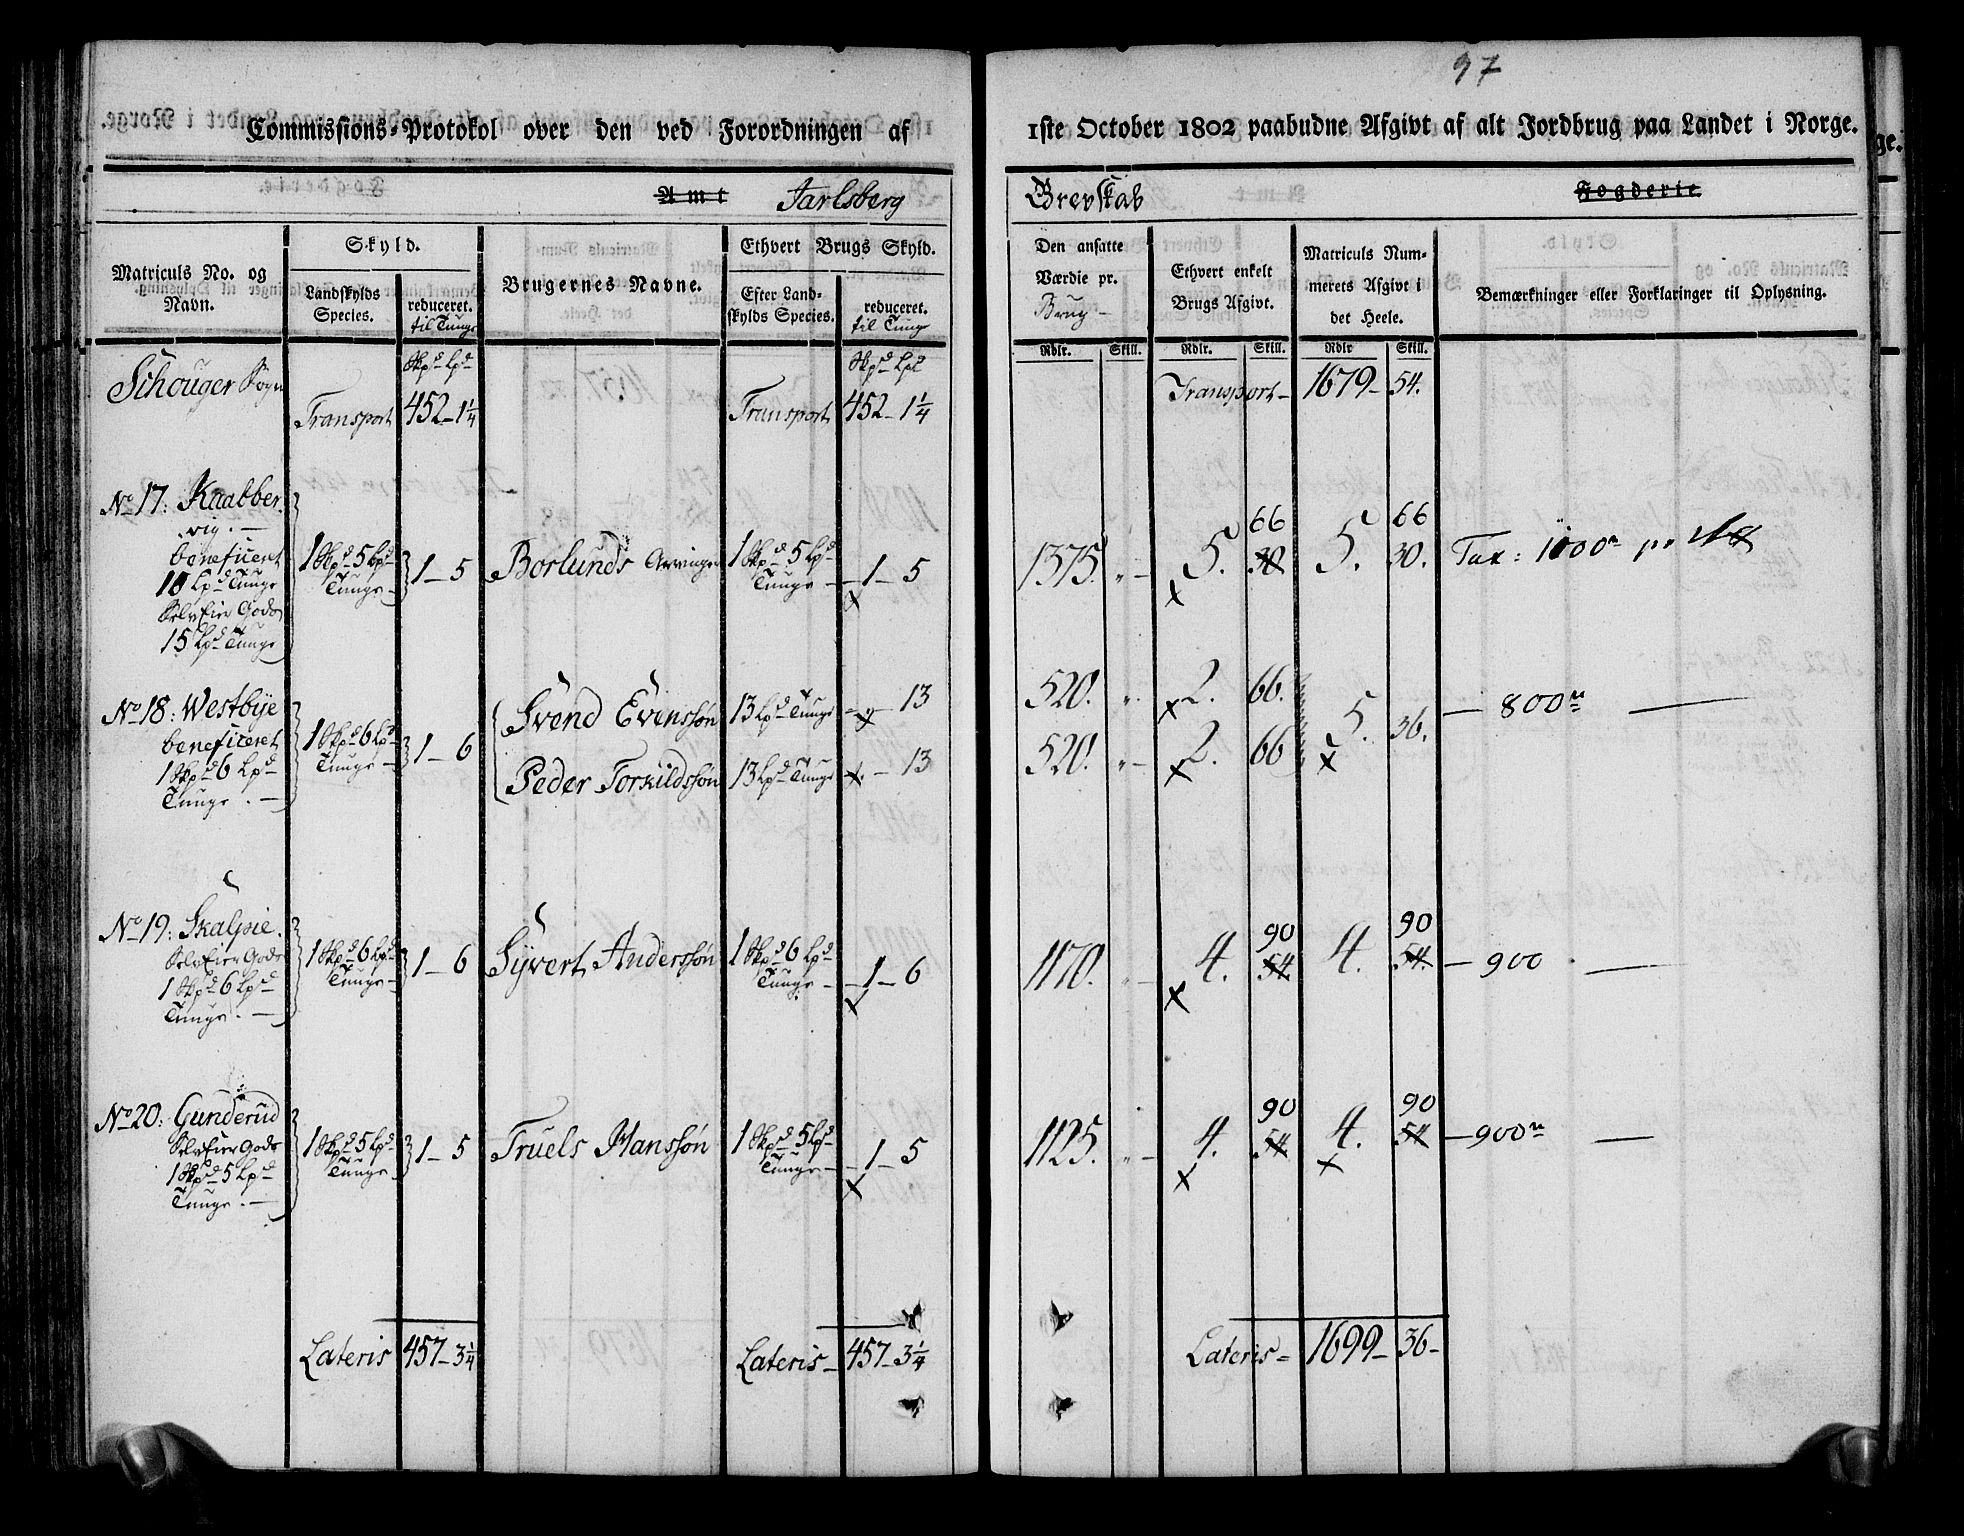 97
Commissions-Protokol over den ved Forordningen af 1ste October 1802 paabudne Afgivt af alt Jordbrug paa Landet i Norge.
Amt Jarlsberg Grevskab Fogderie
Matriculs No. og Navn.
Skyld.
Landskylds Species.
reduceret. til Tunge
Brugernes Navne.
Ethvert Brugs Skyld.
Efter Landskylds Species.
reduceret. til Tunge
Den ansatte Værdie pr. Brug
Ethvert enkelt Brugs Afgivt.
Matriculs Nummerets Afgivt i det Heele.
Bemærkninger eller Forklaringer til Oplysning.
Skpd Lpd Skpd Lpd Rdlr. Skill. Rdlr. Skill. Rdlr Skill.
Schouger Sogn
Transport 452-1¼ Transport 452-1¼ Transport- 1679- 54.
No 17: Kaabber
vig. -
beneficeret
10 Lpd Tunge
SelvEier Gods
15 Lpd Tunge
1 Skpd 5 Lpd Tunge - 1-5 Borlunds Arvinger 1 Skpd 5 Lpd Tunge - 1-5
1375. " - 5. 66 30 5. 66 30. Tax: 1000 pr
No 18: Westbye
beneficeret
1 Skpd 6 Lpd
Tunge. -
1 Skpd 6 Lpd Tunge - 1-6
Svend Evensøn 13 Lpd Tunge - " - 13 520. " - x 2. 66.
Peder Torkildssøn 13 Lpd Tunge - 13 520. " - x 2. 66
5. 36. x - 800 -
No 19: Skalpie.
SelvEier Gods
1 Skpd 6 Lpd
Tunge. -
1 Skpd 6 Lpd Tunge - 1-6 Syvert Anderssøn 1 Skpd 6 Lpd Tunge - 1-6
1170. " - x 4. 90 54 4. 90 54. - 900 -
No 20: Gunderud
SelvEier Gods
1 Skpd 5 Lpd
Tunge. -
1 Skpd 5 Lpd Tunge - 1-5 Truels Hanssøn 1 Skpd 5 Lpd Tunge - 1-5
1125. " - x 4. 90 54 4. x 90 54 - 900 -
Lateris 457-3¼ Lateris- 457-3¼ Lateris= 1699- 36-